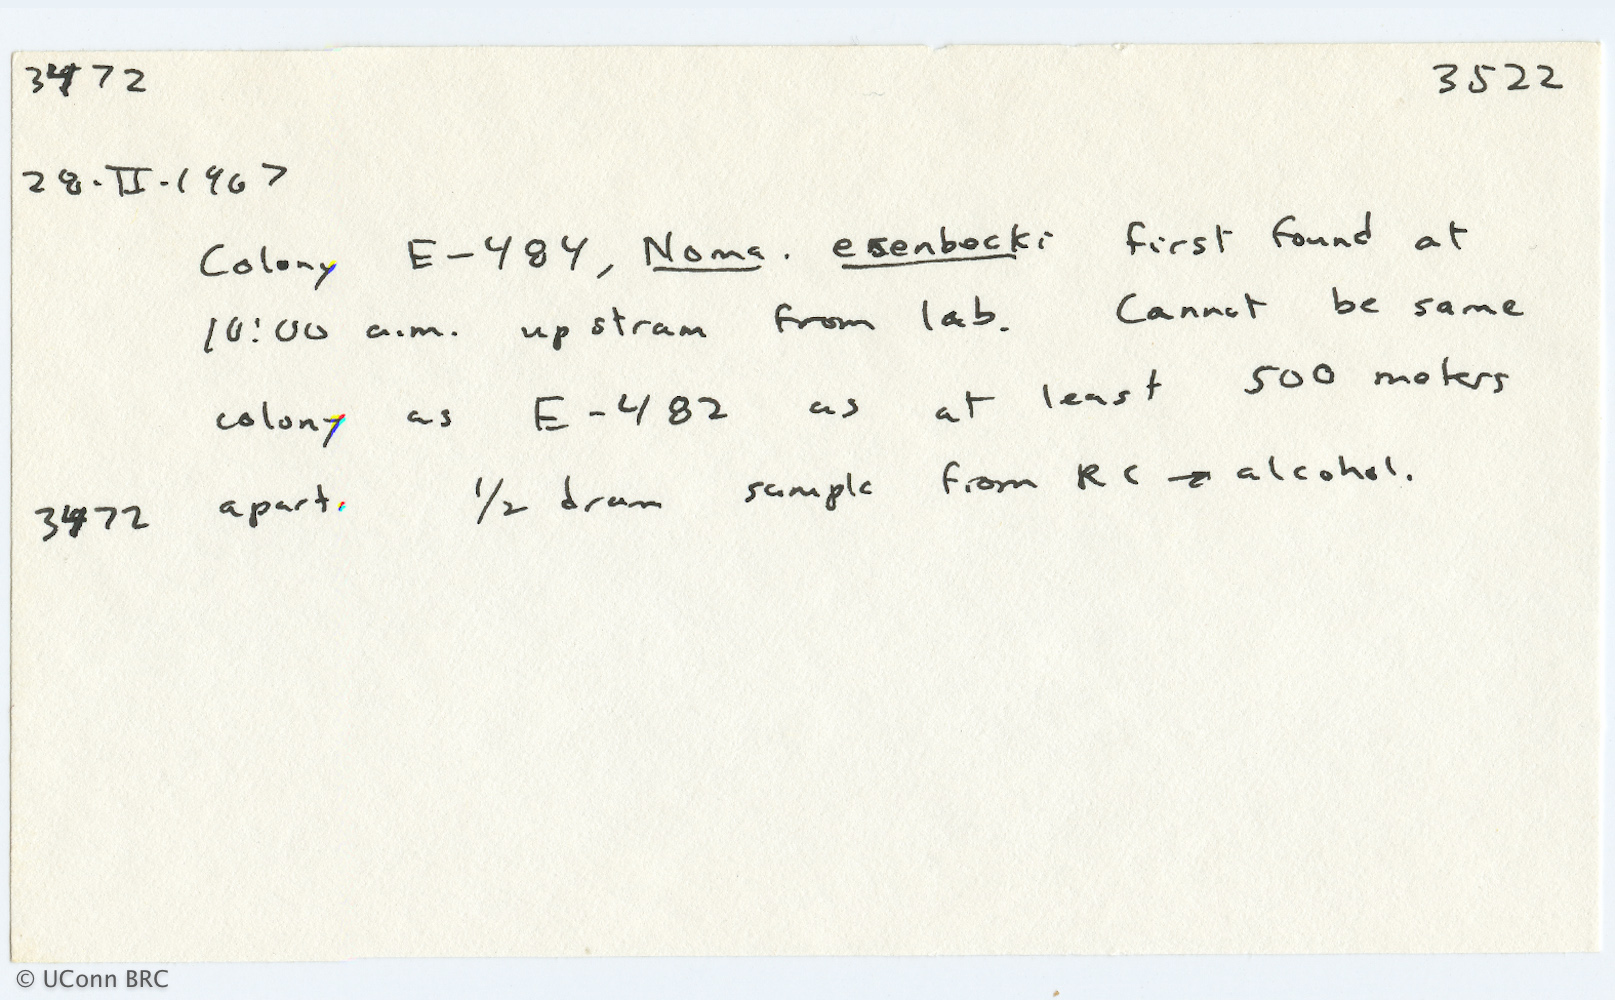 3472 3522
28·II·1967
Colony E-484, Noma. esenbecki first found at
10:00 a.m. upstram from lab. Cannot be same
colony as E-482 as at least 500 meters
3472 apart. 1/2 dram sample from RC → alcohol.
© UConn BRC